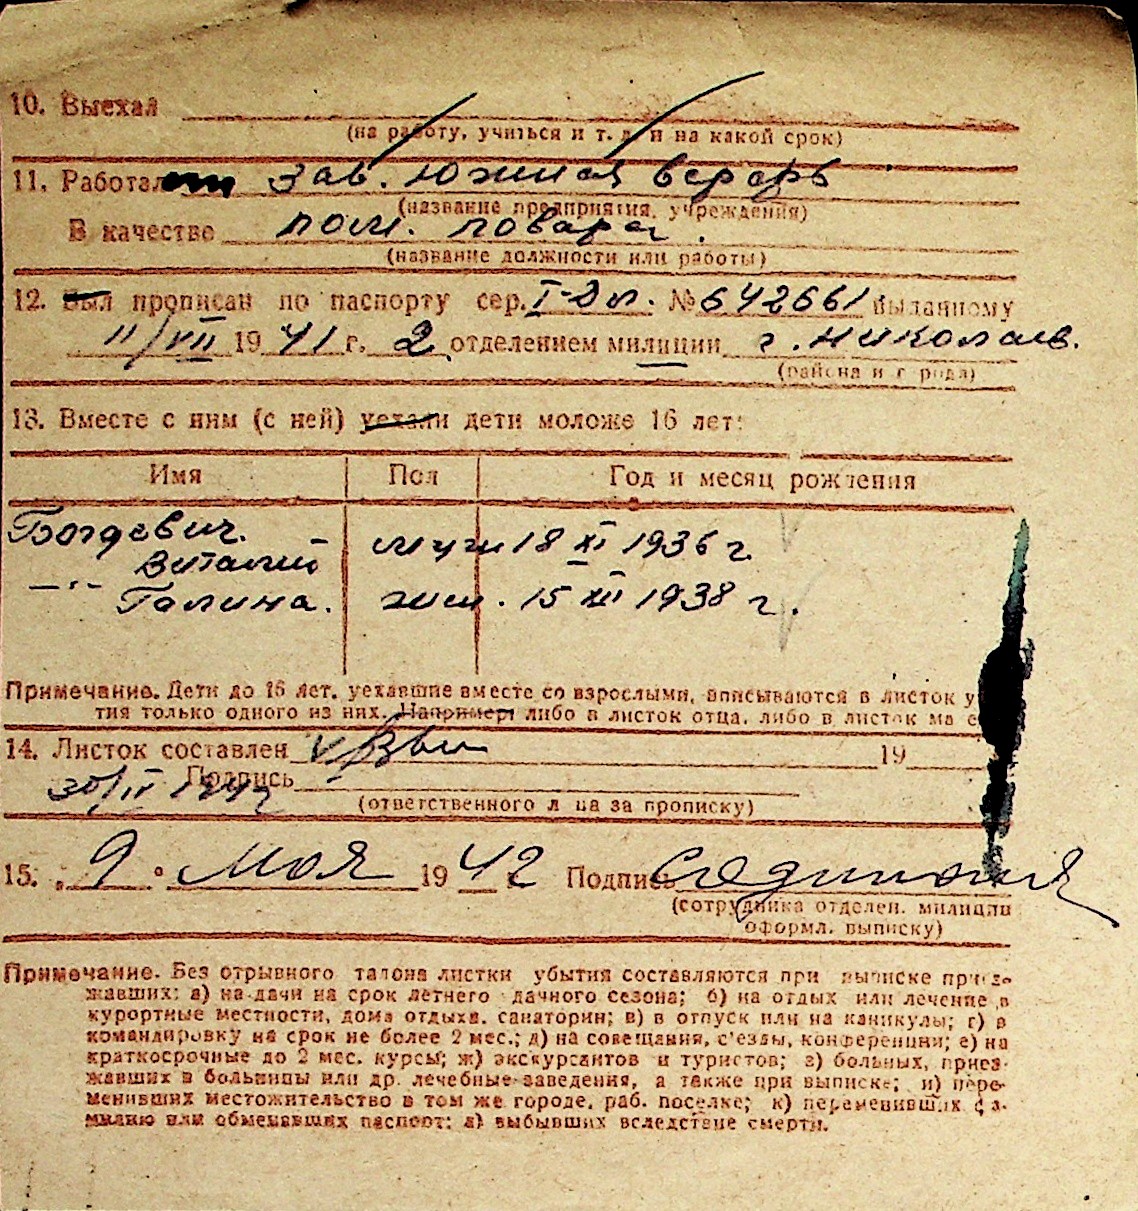 10. Выехал
(на работу, учиться и т. д. и на какой срок)
11. Работал зав. Южная верфь
(название предприятия, учреждения)
В качестве пом. повара.
(название должности или работы)
12. Был прописан по паспорту сер. I-Дп. № 642661 выданному
11/VII 1941 г. 2 отделением милиции г. Николаев.
(района и города)
13. Вместе с ним (с ней) уехали дети моложе 16 лет:
Имя Пол Год и месяц рождения
Богдевич.
Виталий муж 18 XI 1936 г.
—"— Галина. жен. 15 XII 1938 г.
Примечание. Дети до 16 лет, уехавшие вместе со взрослыми, вписываются в листок у
тия только одного из них. Например: либо в листок отца, либо в листок ма е
14. Листок составлен 19
30/IV 1942 Подпись
(ответственного лица за прописку)
15. „9" Мая 1942 Подпись
(сотрудника отделен. милиции
оформл. выписку)
Примечание. Без отрывного талона листки убытия составляются при выписке приез-
жавших: а) на дачи на срок летнего дачного сезона; б) на отдых или лечение в
курортные местности, дома отдыха, санатории; в) в отпуск или на каникулы; г) в
командировку на срок не более 2 мес.; д) на совещания, с'езды, конференции; е) на
краткосрочные до 2 мес. курсы; ж) экскурсантов и туристов; з) больных, приез-
жавших в больницы или др. лечебные заведения, а также при выписке; и) пере-
менивших местожительство в том же городе, раб. поселке; к) переменивших фа-
милию или обменявших паспорт; л) выбывших вследствие смерти.